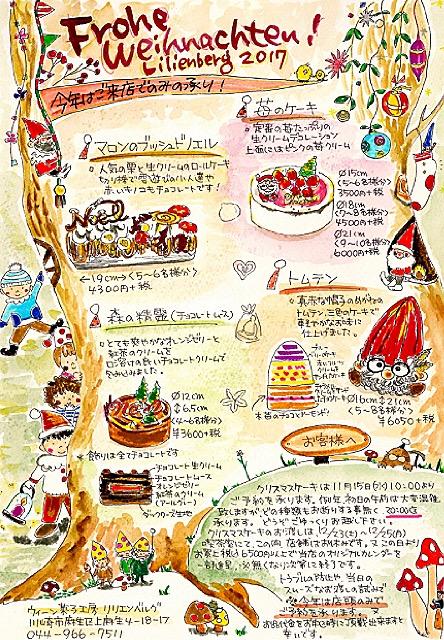 Frohe
Weihnachten!
Lilienberg 2017
今年はご来店でのみの承り!
苺のケーキ
定番の苺たっぷりの
生クリームデコレーション
上面にはピンクの苺クリーム
Ø15cm
<5〜6名様分>
3500円+税
Ø18cm
<7〜8名様分>
4500円+税
Ø21cm
<9〜10名様分>
6000円+税
マロンのブッシュドノエル
人気の栗と生クリームのロールケーキ
赤いキノコもチョコレートです!
←19cm→<5〜6名様分>
4300円+税
森の精霊(チョコレートムース)
とても爽やかなオレンジゼリーと
紅茶のクリームを
口溶けの良いチョコレートクリームで
包み込みました。
Ø12cm
6.5cm
<4〜6名様分>
¥3600+税
飾りは全てチョコレートです
チョコレート生クリーム
チョコレートムース
オレンジゼリー
紅茶のクリーム
(アールグレー)
ダックワーズ生地
トムテン
真赤な帽子のめがねの
トムテン、三色のケーキで
軽やかなお味に
仕上げました。
木苺のチョコとアーモンド
Ø16cm
21cm
<5〜8名様分>
¥6050+税
お客様へ
クリスマスケーキは11月15日(水)10:00より
ご予約を承ります。例年、初日の午前は大変混雑
致しますが、どの種類もお断りする事無く 20:00迄
承ります。どうぞごゆっくりお越し下さい。
クリスマスケーキのお渡しは 12/23(土)〜12/25(月)
お買上税込6500円以上で当店のオリジナルカレンダーを
トラブル防止や、当日の
スムーズなお渡しの為
今年は店頭のみで
ご予約を承ります。
幸いです
ウィーン菓子工房 リリエンベルグ
川崎市麻生区上麻生4-18-17
044-966-7511